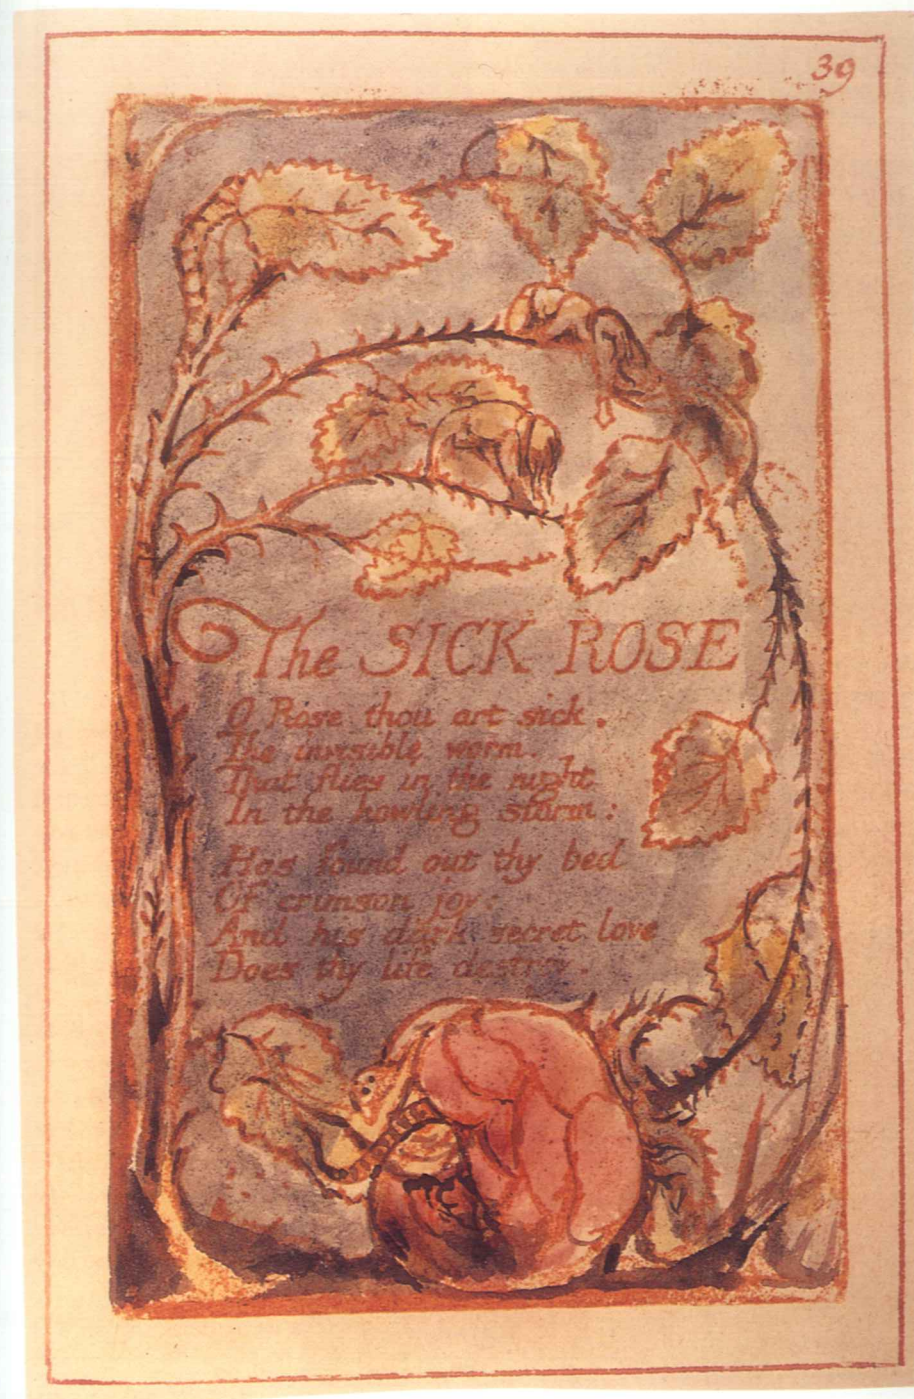 39
The SICK ROSE
O Rose thou art sick.
The invisible worm.
That flies in the night
In the howling storm:
Has found out thy bed
Of crimson joy:
And his dark secret love
Does thy life destroy.